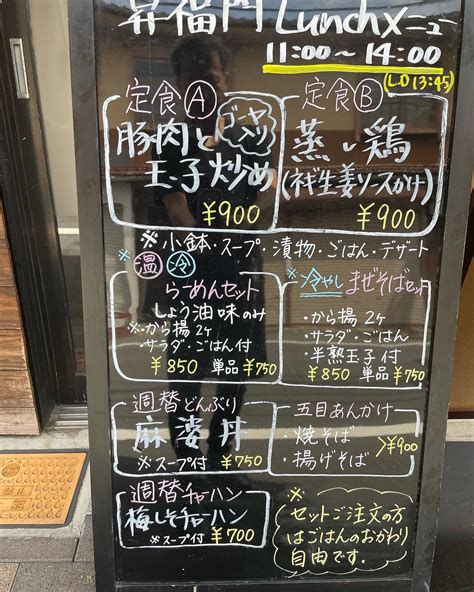 昇福門 Lunchメニュー
11:00～14:00
(L.O 13:45)
定食Ⓐ
豚肉と
ゴーヤ入り
玉子炒め
¥900
定食Ⓑ
蒸し鶏
(ネギ生姜ソースかけ)
¥900
※小鉢・スープ・漬物・ごはん・デザート
※温 冷
らーめんセット
しょう油味のみ
※・から揚2ヶ
・サラダ・ごはん付
¥850 単品¥750
※冷やし まぜそばセット
・から揚2ヶ
・サラダ・ごはん
・半熟玉子付
¥850 単品¥750
週替どんぶり
麻婆丼
※スープ付 ¥750
五目あんかけ
・焼そば
・揚げそば
>¥900
週替チャーハン
梅しそチャーハン
※スープ付 ¥700
※
セットご注文の方
はごはんのおかわり
自由です.